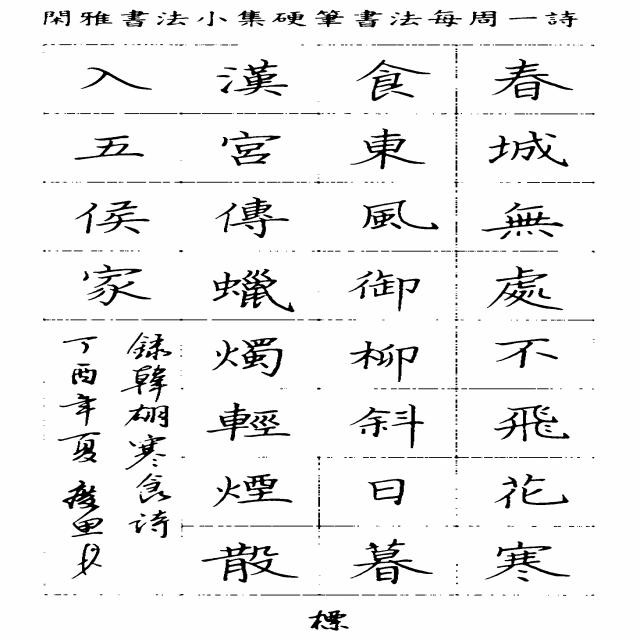 閑雅書法小集硬筆書法每周一詩
春城無處不飛花寒
食東風御柳斜日暮
漢宮傳蠟燭輕煙散
入五侯家
錄韓翃寒食詩
丁酉年夏
標